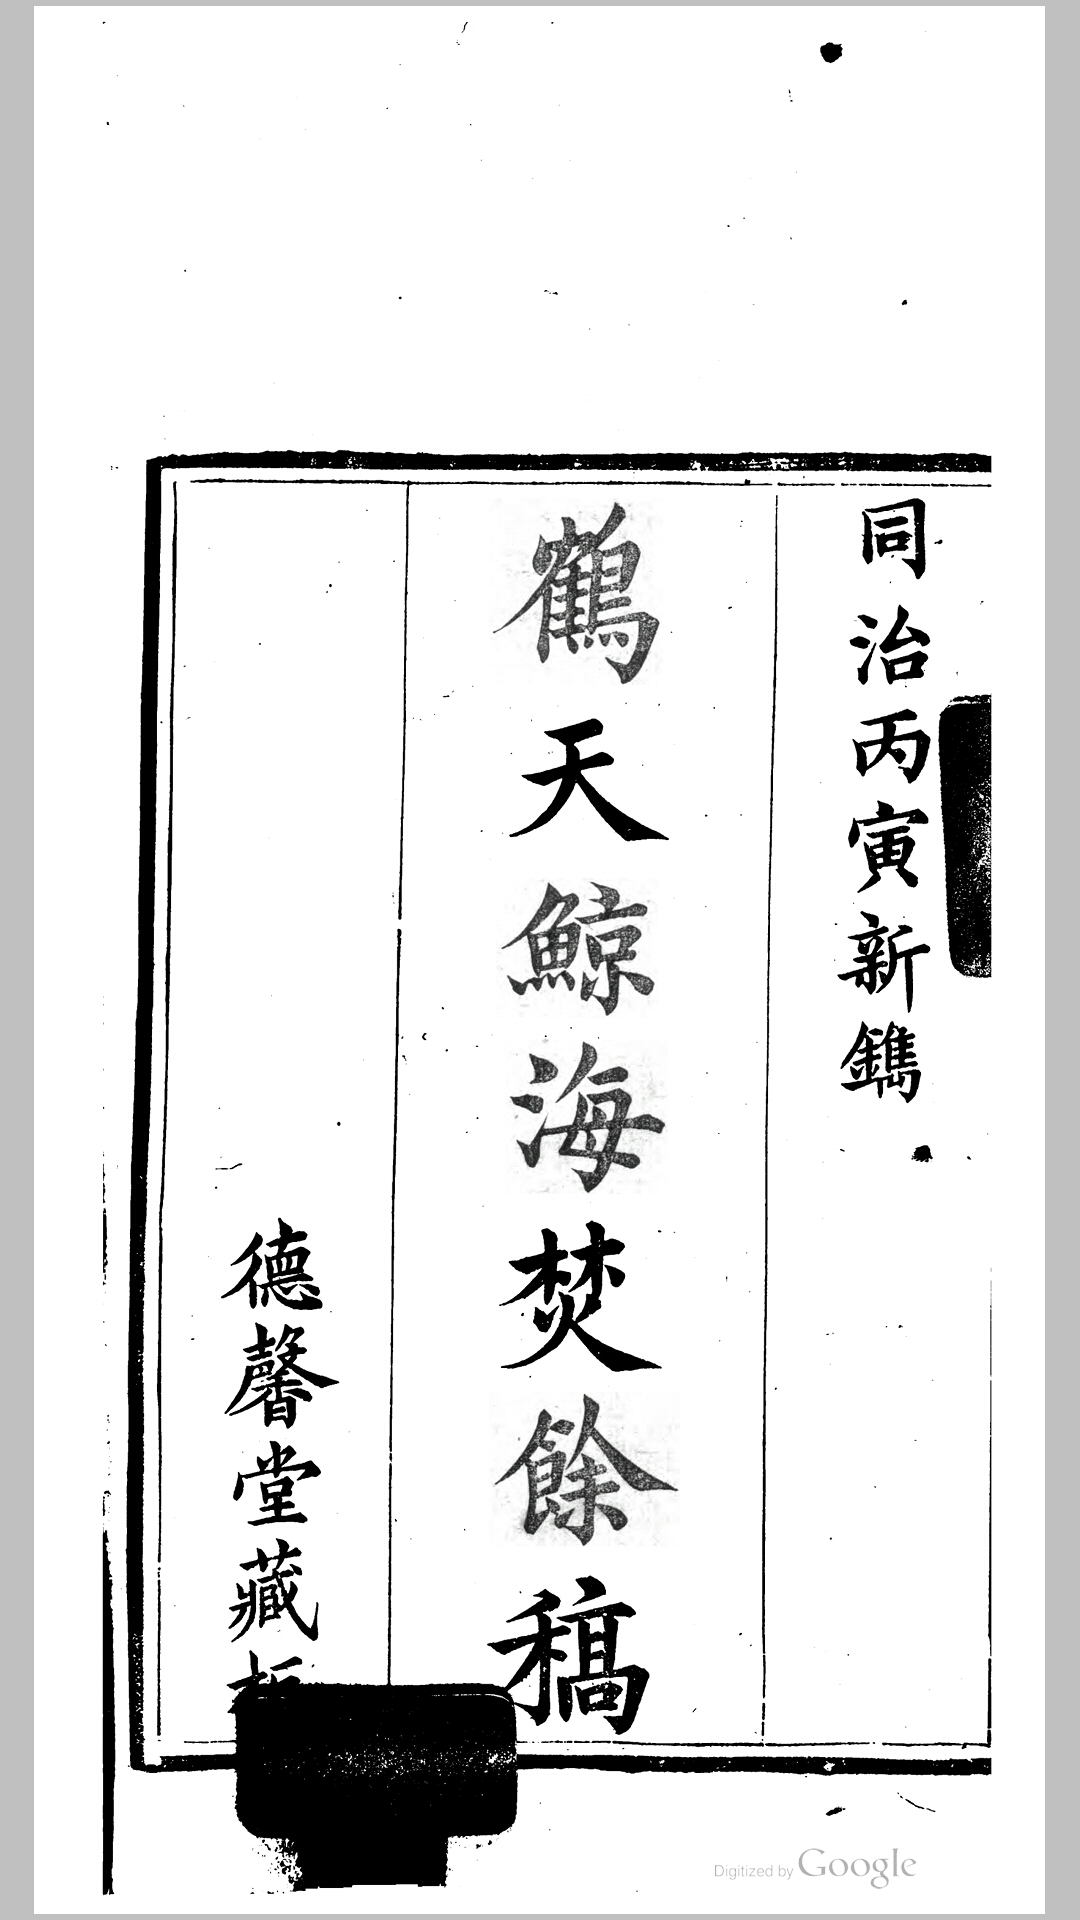 同治丙寅新鐫
鶴天鯨海焚餘稿
德馨堂藏
Digitized by Google